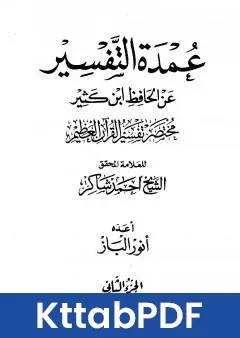 عُمدَة التَّفسِير
عَن الحَافِظ ابن كَثِير
مُختصَر تَفسِير القُرآن العَظِيم
للعلامة المحقق
الشيخ أحمد شاكر
أعدّه
أنور الباز
الجزء الثاني
KttabPDF